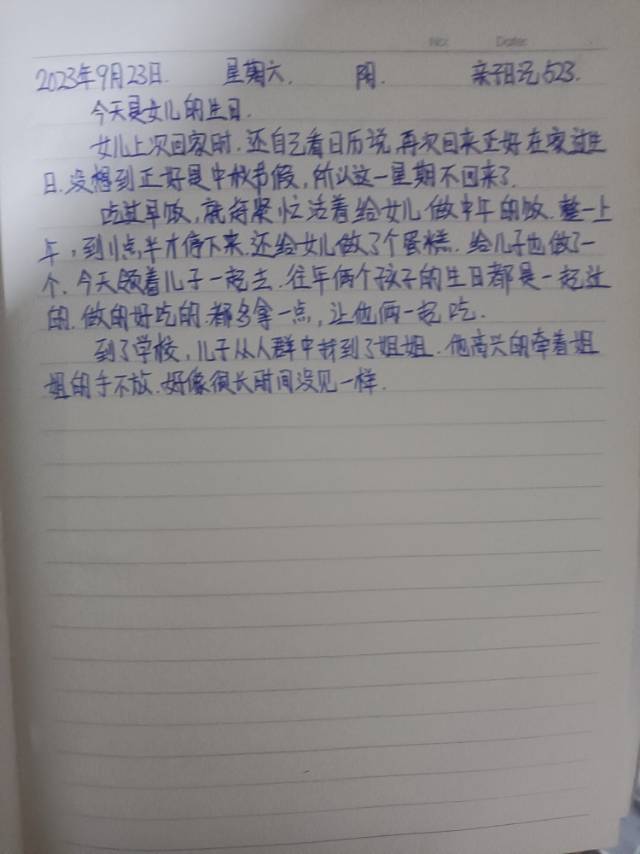 No: Date:
2023年9月23日. 星期六. 阴. 亲子日记523.
今天是女儿的生日.
女儿上次回家时,还自己看日历说,再次回来正好在家过生
日.没想到正好是中秋节假,所以这一星期不回来了.
吃过早饭,就得紧忙活着给女儿做中午的饭.整一上
午,到1点半才停下来.还给女儿做了个蛋糕.给儿子也做了一
个.今天领着儿子一起去.往年俩个孩子的生日都是一起过
的.做的好吃的.都多拿一点,让他俩一起吃.
到了学校,儿子从人群中找到了姐姐.他高兴的牵着姐
姐的手不放.好像很长时间没见一样.